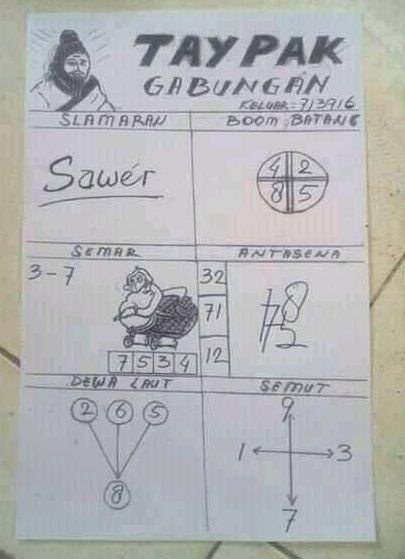 TAYPAK
GABUNGAN
KELUAR = 713916
SLAMARAN
BOOM BATANG
Sawér
4 2
8 5
SEMAR
ANTASENA
3-7
32
71
12
7 5 3 4
8
2
DEWA LAUT
SEMUT
2 6 5
8
9
1 3
7